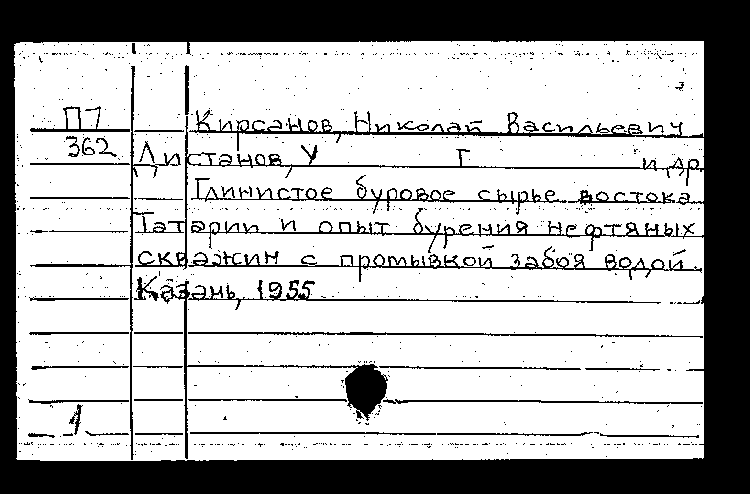 П7
362
Кирсанов, Николай Васильевич
Дистанов, У Г и др
Глинистое буровое сырье востока
Татарии и опыт бурения нефтяных
скважин с промывкой забоя водой.
Казань, 1955
1